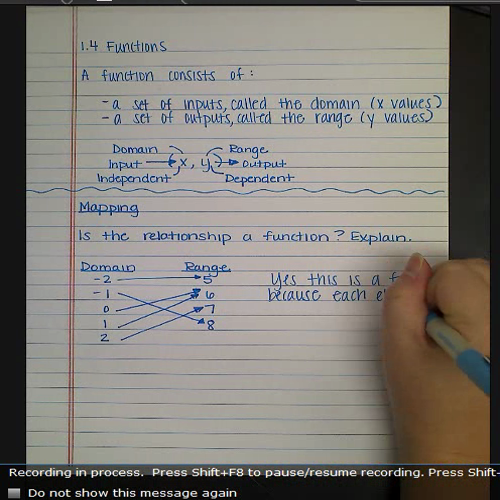 1.4 Functions
A function consists of:
- a set of inputs, called the domain (x values)
- a set of outputs, called the range (y values)
Domain Range
Input x, y Output
Independent Dependent
Mapping
Is the relationship a function? Explain.
Domain Range
-2 5
-1 6
0 7
1 8
2
Yes this is a f
because each e
Recording in process. Press Shift+F8 to pause/resume recording. Press Shift-
Do not show this message again